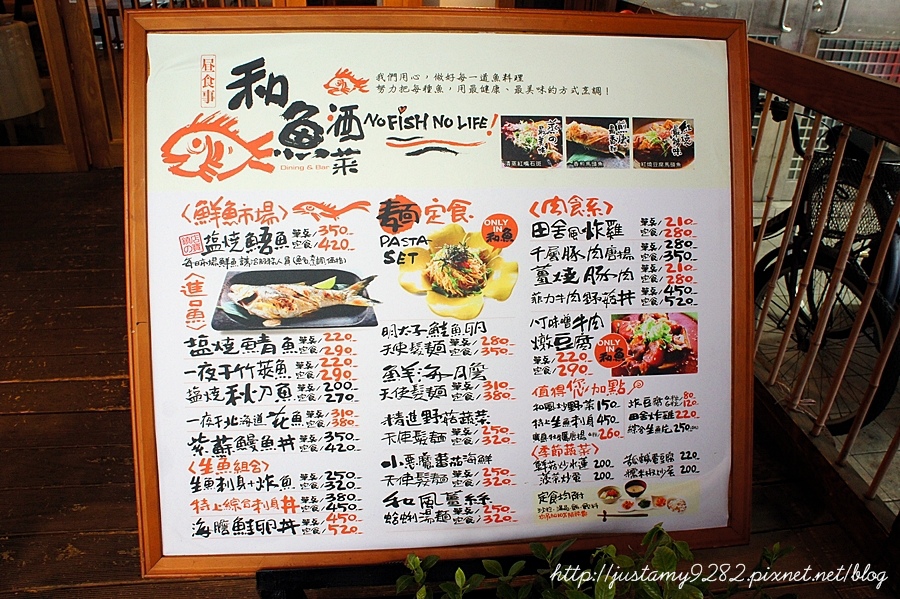 昼食事
和魚
酒菜
Dining & Bar
我們用心，做好每一道魚料理
努力把每種魚，用最健康、最美味的方式烹調！
NO FISH NO LIFE!
〈鮮魚市場〉
鎮店之寶
塩燒鯃魚 單點/350 定食/420
〈進口魚〉
塩燒鯖魚 單點/220 定食/290
一夜干竹筴魚 單點/220 定食/290
塩燒秋刀魚 單點/200 定食/270
一夜干北海道花魚 單點/310 定食/380
紫蘇鰻魚丼 單點/350 定食/420
〈生魚組合〉
生魚刺身+炸魚 單點/250 定食/320
特上綜合刺身丼 單點/380 定食/450
海膽鮭卵丼 單點/450 定食/520
麵定食
PASTA SET
ONLY IN 和魚
明太子鮭魚卵
天使髮麵 單點/280 定食/350
鮮洋海鮮
天使髮麵 單點/310 定食/380
精進野菇蔬菜
天使髮麵 單點/250 定食/320
小惡魔蕃茄海鮮
天使髮麵 單點/250 定食/320
和風薑絲
蛤蜊湯麵 單點/250 定食/320
〈肉食系〉
田舍風炸雞 單點/210 定食/280
千層豚肉唐揚 單點/280 定食/350
薑燒豚肉 單點/210 定食/280
菲力牛肉野菇丼 單點/450 定食/520
八丁味噌牛肉
燉豆腐
單點/220
定食/290
ONLY IN 和魚
值得您加點
和風炒野菜 150
特上生魚刺身 450
260
炸豆腐 80 120
田舍炸雞 220
綜合生魚片 250
〈季節蔬菜〉
鮮菇炒水蓮 200
200
220
200
定食均附
http://justamy9282.pixnet.net/blog